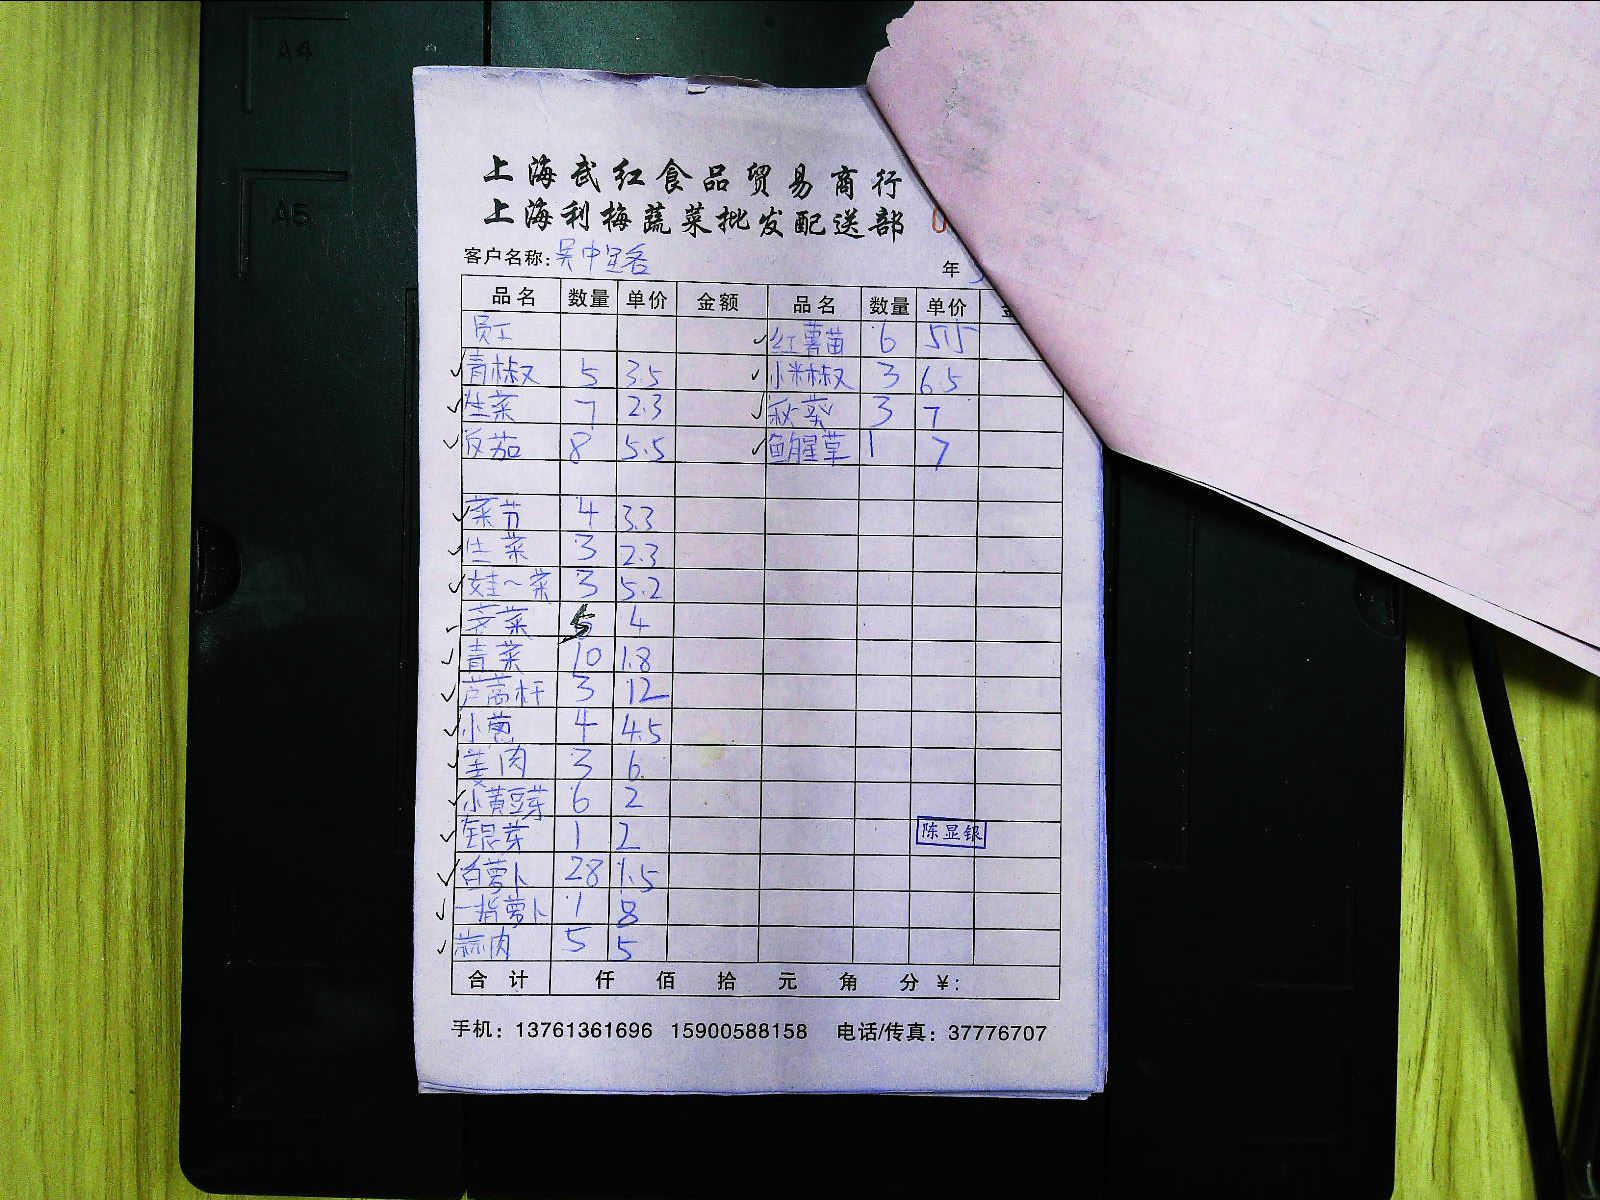 A4
A5
上海武红食品贸易商行
上海利梅蔬菜批发配送部 0
客户名称: 吴中 年
品名 数量 单价 金额 品名 数量 单价
员工 红薯苗 6 5.5
青椒 5 3.5 小米椒 3 6.5
生菜 7 2.3 秋葵 3 7
反茄 8 5.5 鱼腥草 1 7
菜节 4 3.3
生菜 3 2.3
娃~菜 3 5.2
芹菜 5 4
青菜 10 1.8
芦蒿杆 3 12
小葱 4 4.5
姜肉 3 6
小黄豆芽 6 2
银芽 1 2 陈显银
白萝卜 28 1.5
一指萝卜 1 8
蒜肉 5 5
合计 仟 佰 拾 元 角 分 ¥:
手机: 13761361696 15900588158 电话/传真: 37776707